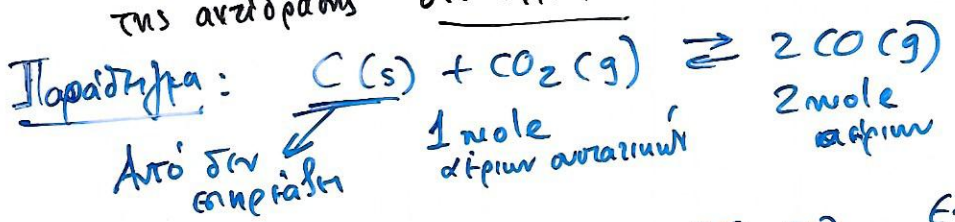 της αντίδρασης
Παράδειγμα: C(s) + CO2(g) ⇄ 2CO(g)
Αυτό δεν επηρεάζει
1 mole αέριων συστατικών
2 mole αέριων